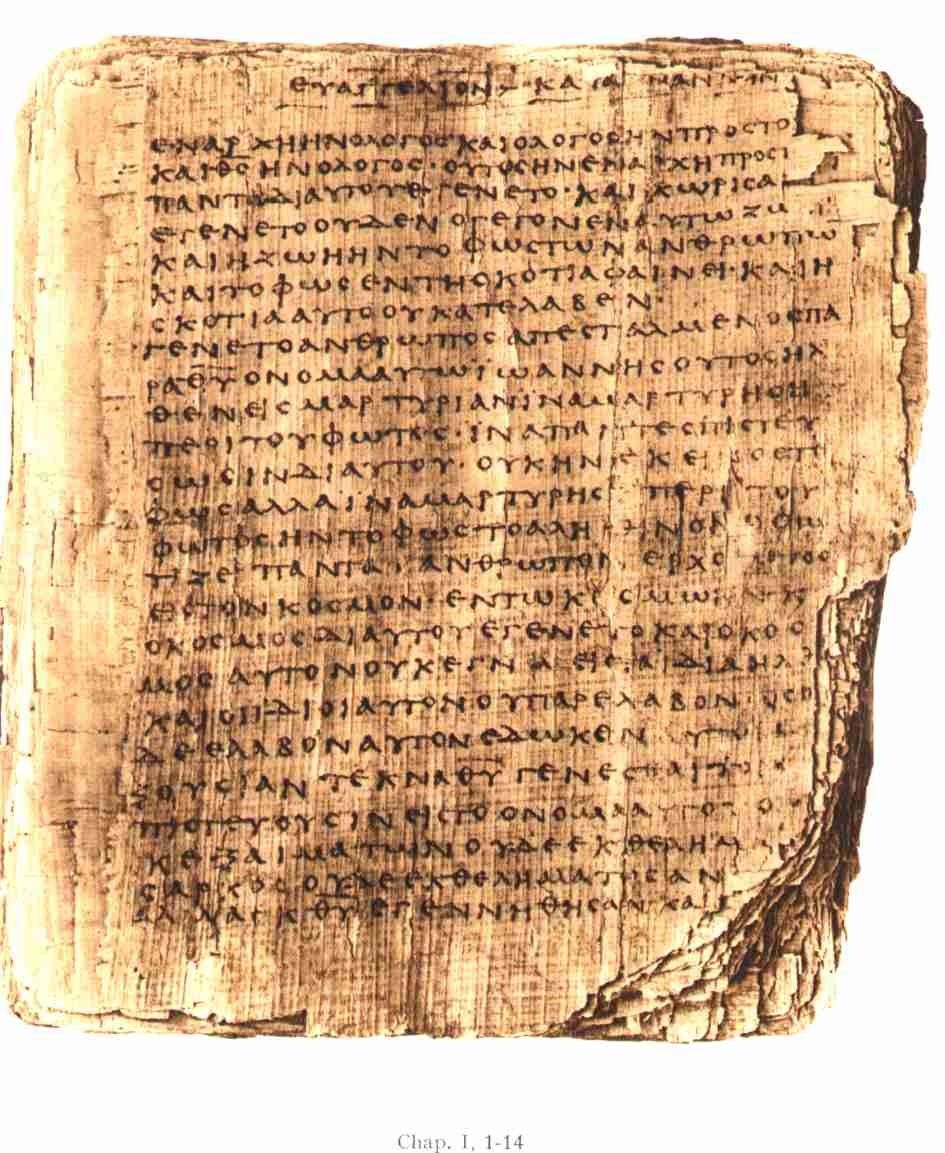 ΕΥΑΓΓΕΛΙΟΝ ΚΑΤΑ
ΕΝΑΡΧΗΗΝΟΛΟΓΟΣΚΑΙΟΛΟΓΟΣΗΝΠΡΟΣΤΟ
ΚΑΙΘΣΗΝΟΛΟΓΟΣ·ΟΥΤΟΣΗΝΕΝΑΡΧΗΠΡΟΣ
ΠΑΝΤΑΔΙΑΥΤΟΥΕΓΕΝΕΤΟ·ΚΑΙΧΩΡΙΣΑ
ΕΓΕΝΕΤΟΟΥΔΕΝΟΓΕΓΟΝΕΝΕΝΑΥΤΩΖΩ
ΚΑΙΗΖΩΗΗΝΤΟΦΩΣΤΩΝΑΝΘΡΩΠΩ
ΚΑΙΤΟΦΩΣΕΝΤΗΣΚΟΤΙΑΦΑΙΝΕΙ·ΚΑΙΗ
ΣΚΟΤΙΑΑΥΤΟΟΥΚΑΤΕΛΑΒΕΝ·
ΓΕΝΕΤΟΑΝΘΡΩΠΟΣΑΠΕΣΤΑΛΜΕΝΟΣΠΑ
ΡΑΘΥΟΝΟΜΑΑΥΤΩΪΩΑΝΝΗΣΟΥΤΟΣΗΛ
ΘΕΝΕΙΣΜΑΡΤΥΡΙΑΝΪΝΑΜΑΡΤΥΡΗΣΗ
ΠΕΡΙΤΟΥΦΩΤΟΣ·ΪΝΑΠΑΝΤΕΣΠΙΣΤΕΥ
ΣΩΣΙΝΔΙΑΥΤΟΥ·ΟΥΚΗΝΕΚΕΙΝΟΣΤΟ
ΦΩΣΑΛΛΑΪΝΑΜΑΡΤΥΡΗΣΗΠΕΡΙΤΟΥ
ΦΩΤΟΣΗΝΤΟΦΩΣΤΟΑΛΗΘΙΝΟΝΟΦΩ
ΤΙΖΕΙΠΑΝΤΑΑΝΘΡΩΠΟΝΕΡΧΟΜΕΝΟ
ΕΙΣΤΟΝΚΟΣΜΟΝ·ΕΝΤΩΚΟΣΜΩΗΝΚ
ΟΚΟΣΜΟΣΔΙΑΥΤΟΥΕΓΕΝΕΤΟΚΑΙΟΚΟΣ
ΜΟΣΑΥΤΟΝΟΥΚΕΓΝΩΕΙΣΤΑΙΔΙΑΗΛΘ
ΚΑΙΟΙΪΔΙΟΙΑΥΤΟΝΟΥΠΑΡΕΛΑΒΟΝ·ΟΣΟ
ΔΕΕΛΑΒΟΝΑΥΤΟΝΕΔΩΚΕΝΑΥΤΟΙ
ΞΟΥΣΙΑΝΤΕΚΝΑΘΥΓΕΝΕΣΘΑΙΤΟΙ
ΠΙΣΤΕΥΟΥΣΙΝΕΙΣΤΟΟΝΟΜΑΑΥΤΟΥΟ
ΚΕΞΑΙΜΑΤΩΝΟΥΔΕΕΚΘΕΛΗΜ
ΣΑΡΚΟΣΟΥΔΕΕΚΘΕΛΗΜΑΤΟΣΑΝ
ΑΛΛΑΕΚΘΥΕΓΕΝΝΗΘΗΣΑΝΚΑΙ
Chap. I, 1-14